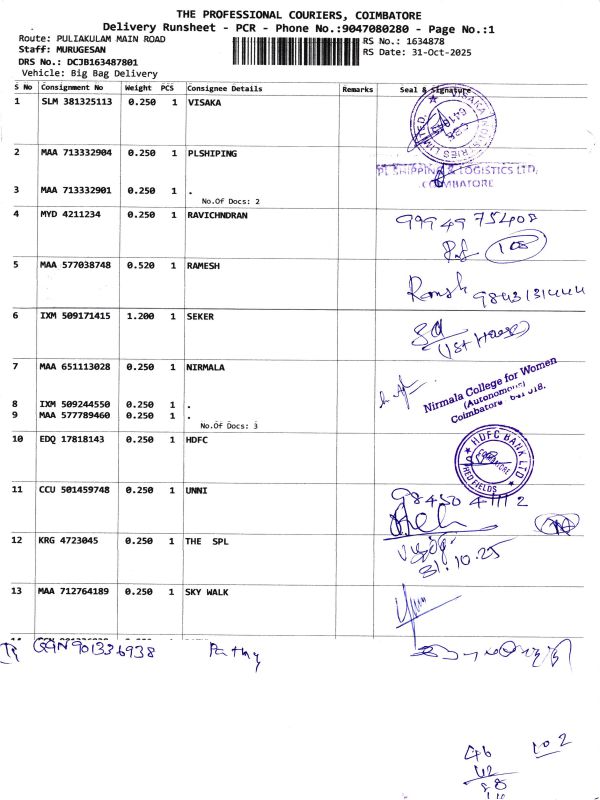 THE PROFESSIONAL COURIERS, COIMBATORE
Delivery Runsheet - PCR - Phone No.:9047080280 - Page No.:1
Route: PULIAKULAM MAIN ROAD
Staff: MURUGESAN
RS No.: 1634878
RS Date: 31-Oct-2025
DRS No.: DCJB163487801
Vehicle: Big Bag Delivery
S No Consignment No Weight PCS Consignee Details Remarks Seal & Signature
1 SLM 381325113 0.250 1 VISAKA
VISAKA INDUSTRIES LIMITED
2 MAA 713332904 0.250 1 PLSHIPING
PL SHIPPING & LOGISTICS LTD,
COIMBATORE
3 MAA 713332901 0.250 1 .
No.Of Docs: 2
4 MYD 4211234 0.250 1 RAVICHNDRAN
99949 75408
108
5 MAA 577038748 0.520 1 RAMESH
Ramesh 9843131444
6 IXM 509171415 1.200 1 SEKER
7 MAA 651113028 0.250 1 NIRMALA
Nirmala College for Women
(Autonomous)
Coimbatore 641 018.
8 IXM 509244550 1 .
9 MAA 577789460 0.250 1 .
No.Of Docs: 3
10 EDQ 17818143 0.250 1 HDFC
HDFC BANK LTD
COIMBATORE
RED FIELDS
11 CCU 501459748 0.250 1 UNNI
98450 41112
12 KRG 4723045 0.250 1 THE SPL
31.10.25
13 MAA 712764189 0.250 1 SKY WALK
GGN901336938 Pathy
46 102
42
88
14